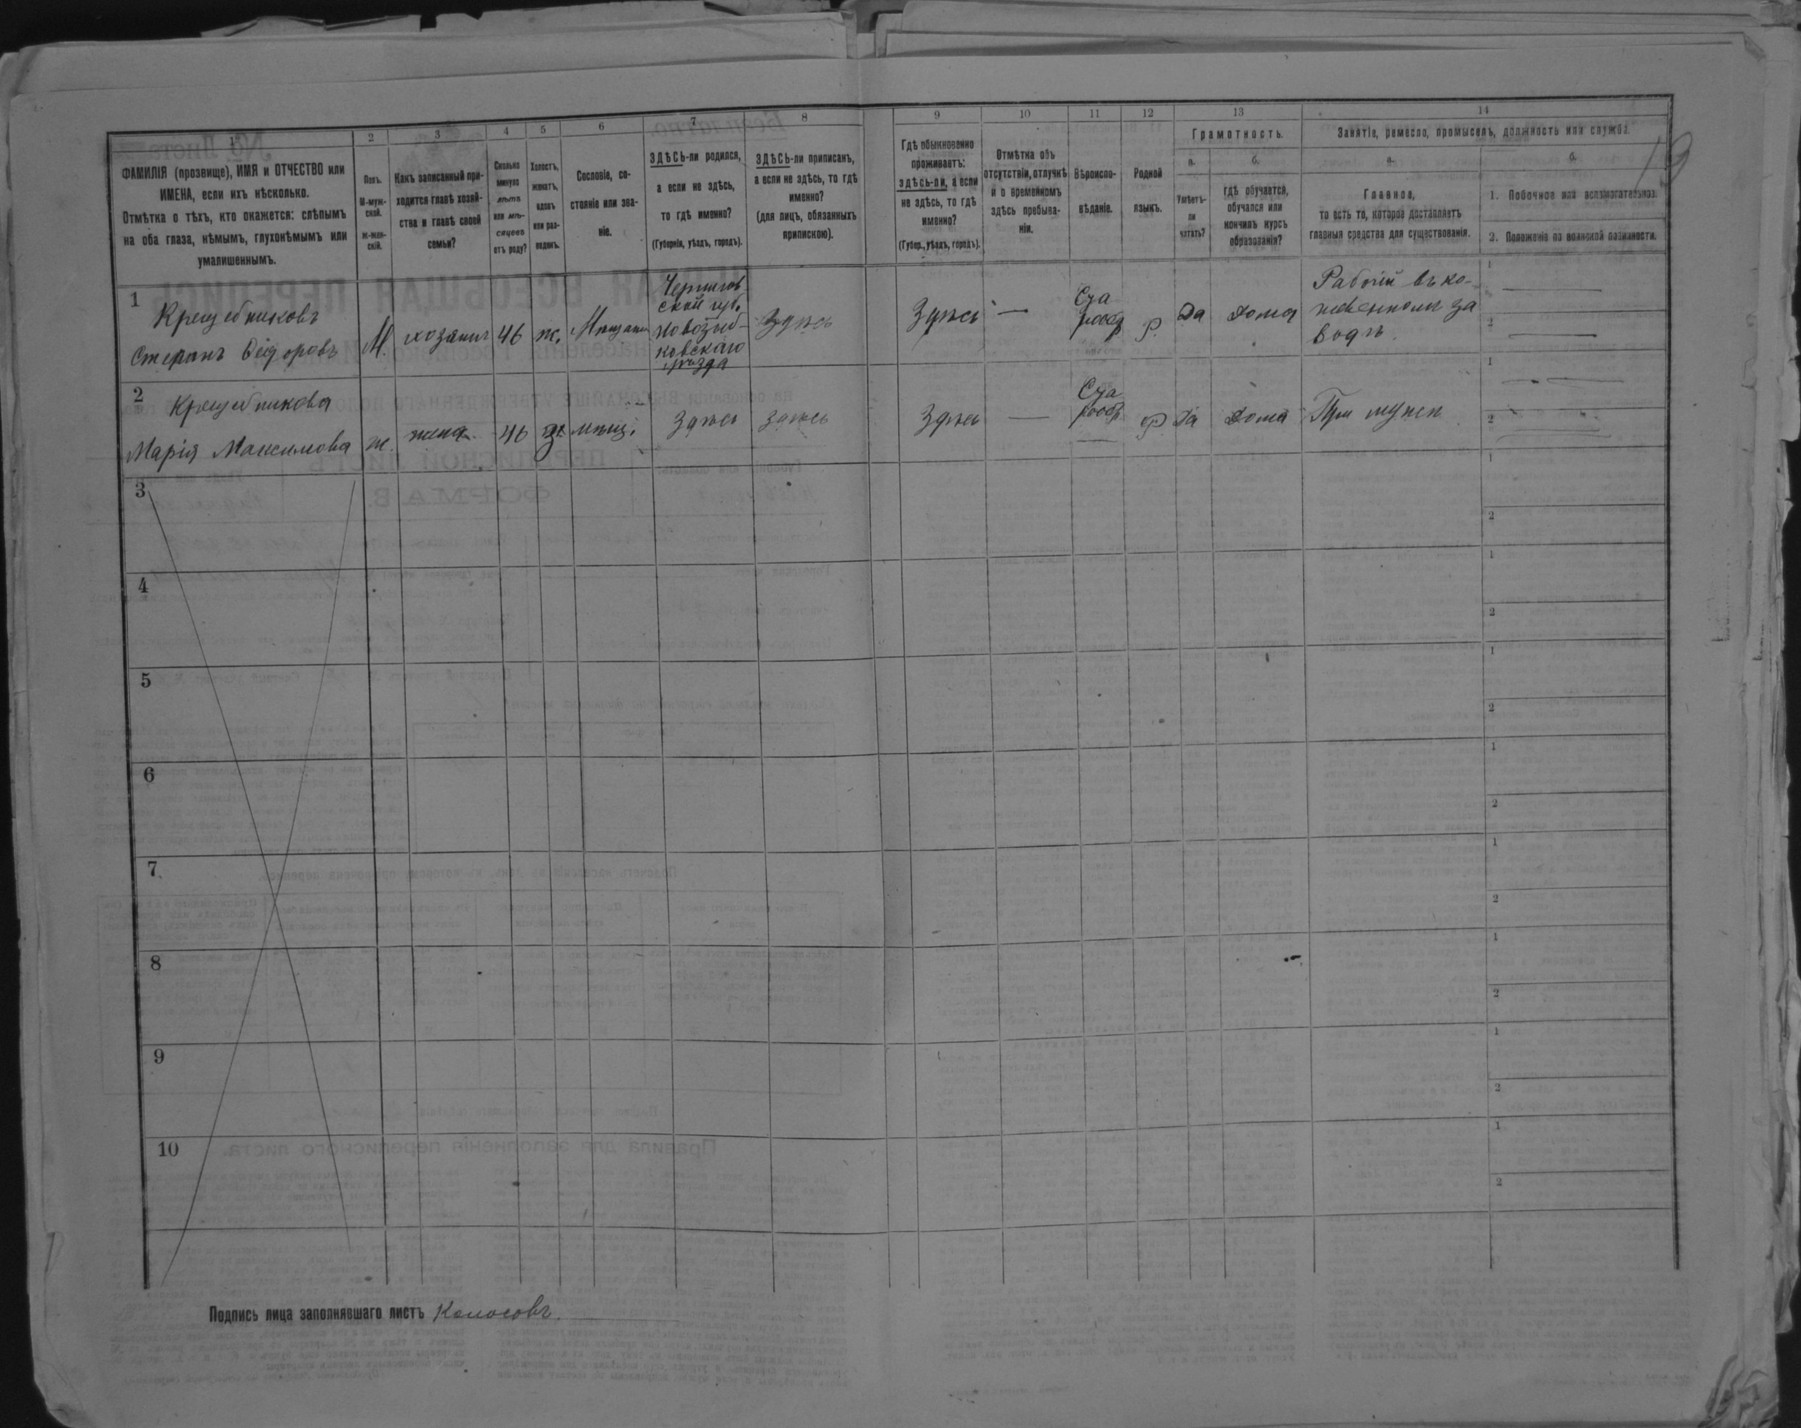 1
ФАМИЛІЯ (прозвище), ИМЯ и ОТЧЕСТВО или
ИМЕНА, если ихъ нѣсколько.
Отмѣтка о тѣхъ, кто окажется: слѣпымъ
на оба глаза, нѣмымъ, глухонѣмымъ или
умалишеннымъ.
2
Полъ.
М-муж-
ской.
ж-жен-
скій.
3
Какъ записанный при-
ходится главѣ хозяй-
ства и главѣ своей
семьи?
4
Сколько
минуло
лѣтъ
или мѣ-
сяцевъ
отъ роду?
5
Холостъ,
женатъ,
вдовъ
или раз-
веденъ.
6
Сословіе, со-
стояніе или зва-
ніе.
7
ЗДѢСЬ-ли родился,
а если не здѣсь,
то гдѣ именно?
(Губернія, уѣздъ, городъ).
8
ЗДѢСЬ-ли приписанъ,
а если не здѣсь, то гдѣ
именно?
(для лицъ, обязанныхъ
припискою).
9
Гдѣ обыкновенно
проживаетъ:
здѣсь-ли, а если
не здѣсь, то гдѣ
именно?
(Губер., уѣздъ, городъ).
10
Отмѣтка объ
отсутствіи, отлучкѣ
и о временномъ
здѣсь пребыва-
ніи.
11
Вѣроиспо-
вѣданіе.
12
Родной
языкъ.
13
Грамотность.
а.
Умѣетъ-
ли
читать?
б.
гдѣ обучается,
обучался или
кончилъ курсъ
образованія?
14
Занятіе, ремесло, промыселъ, должность или служба.
а.
Главное,
то есть то, которое доставляетъ
главныя средства для существованія.
б.
1. Побочное или вспомогательное.
2. Положеніе по воинской повинности.
19
1
Крещебниковъ
Степанъ Ѳедоровъ
М.
хозяинъ
46
ж.
Мещанин
Чернигов
ской губ.
Новозыб-
ковскаго
уѣзда
Здѣсь
Здѣсь
—
Ста
рообр
Р.
Да
Дома
Рабочій въ ко-
жевенномъ за
водѣ.
1
2
2
Крещебникова
Марія Максимова
ж.
жена
46
з
мѣщ.
Здѣсь
Здѣсь
Здѣсь
—
Ста
рообр
Р
Да
Дома
При мужѣ
1
2
3
1
2
4
1
2
5
1
2
6
1
2
7
1
2
8
1
2
9
1
2
10
1
2
Подпись лица заполнявшаго листъ Колосовъ.